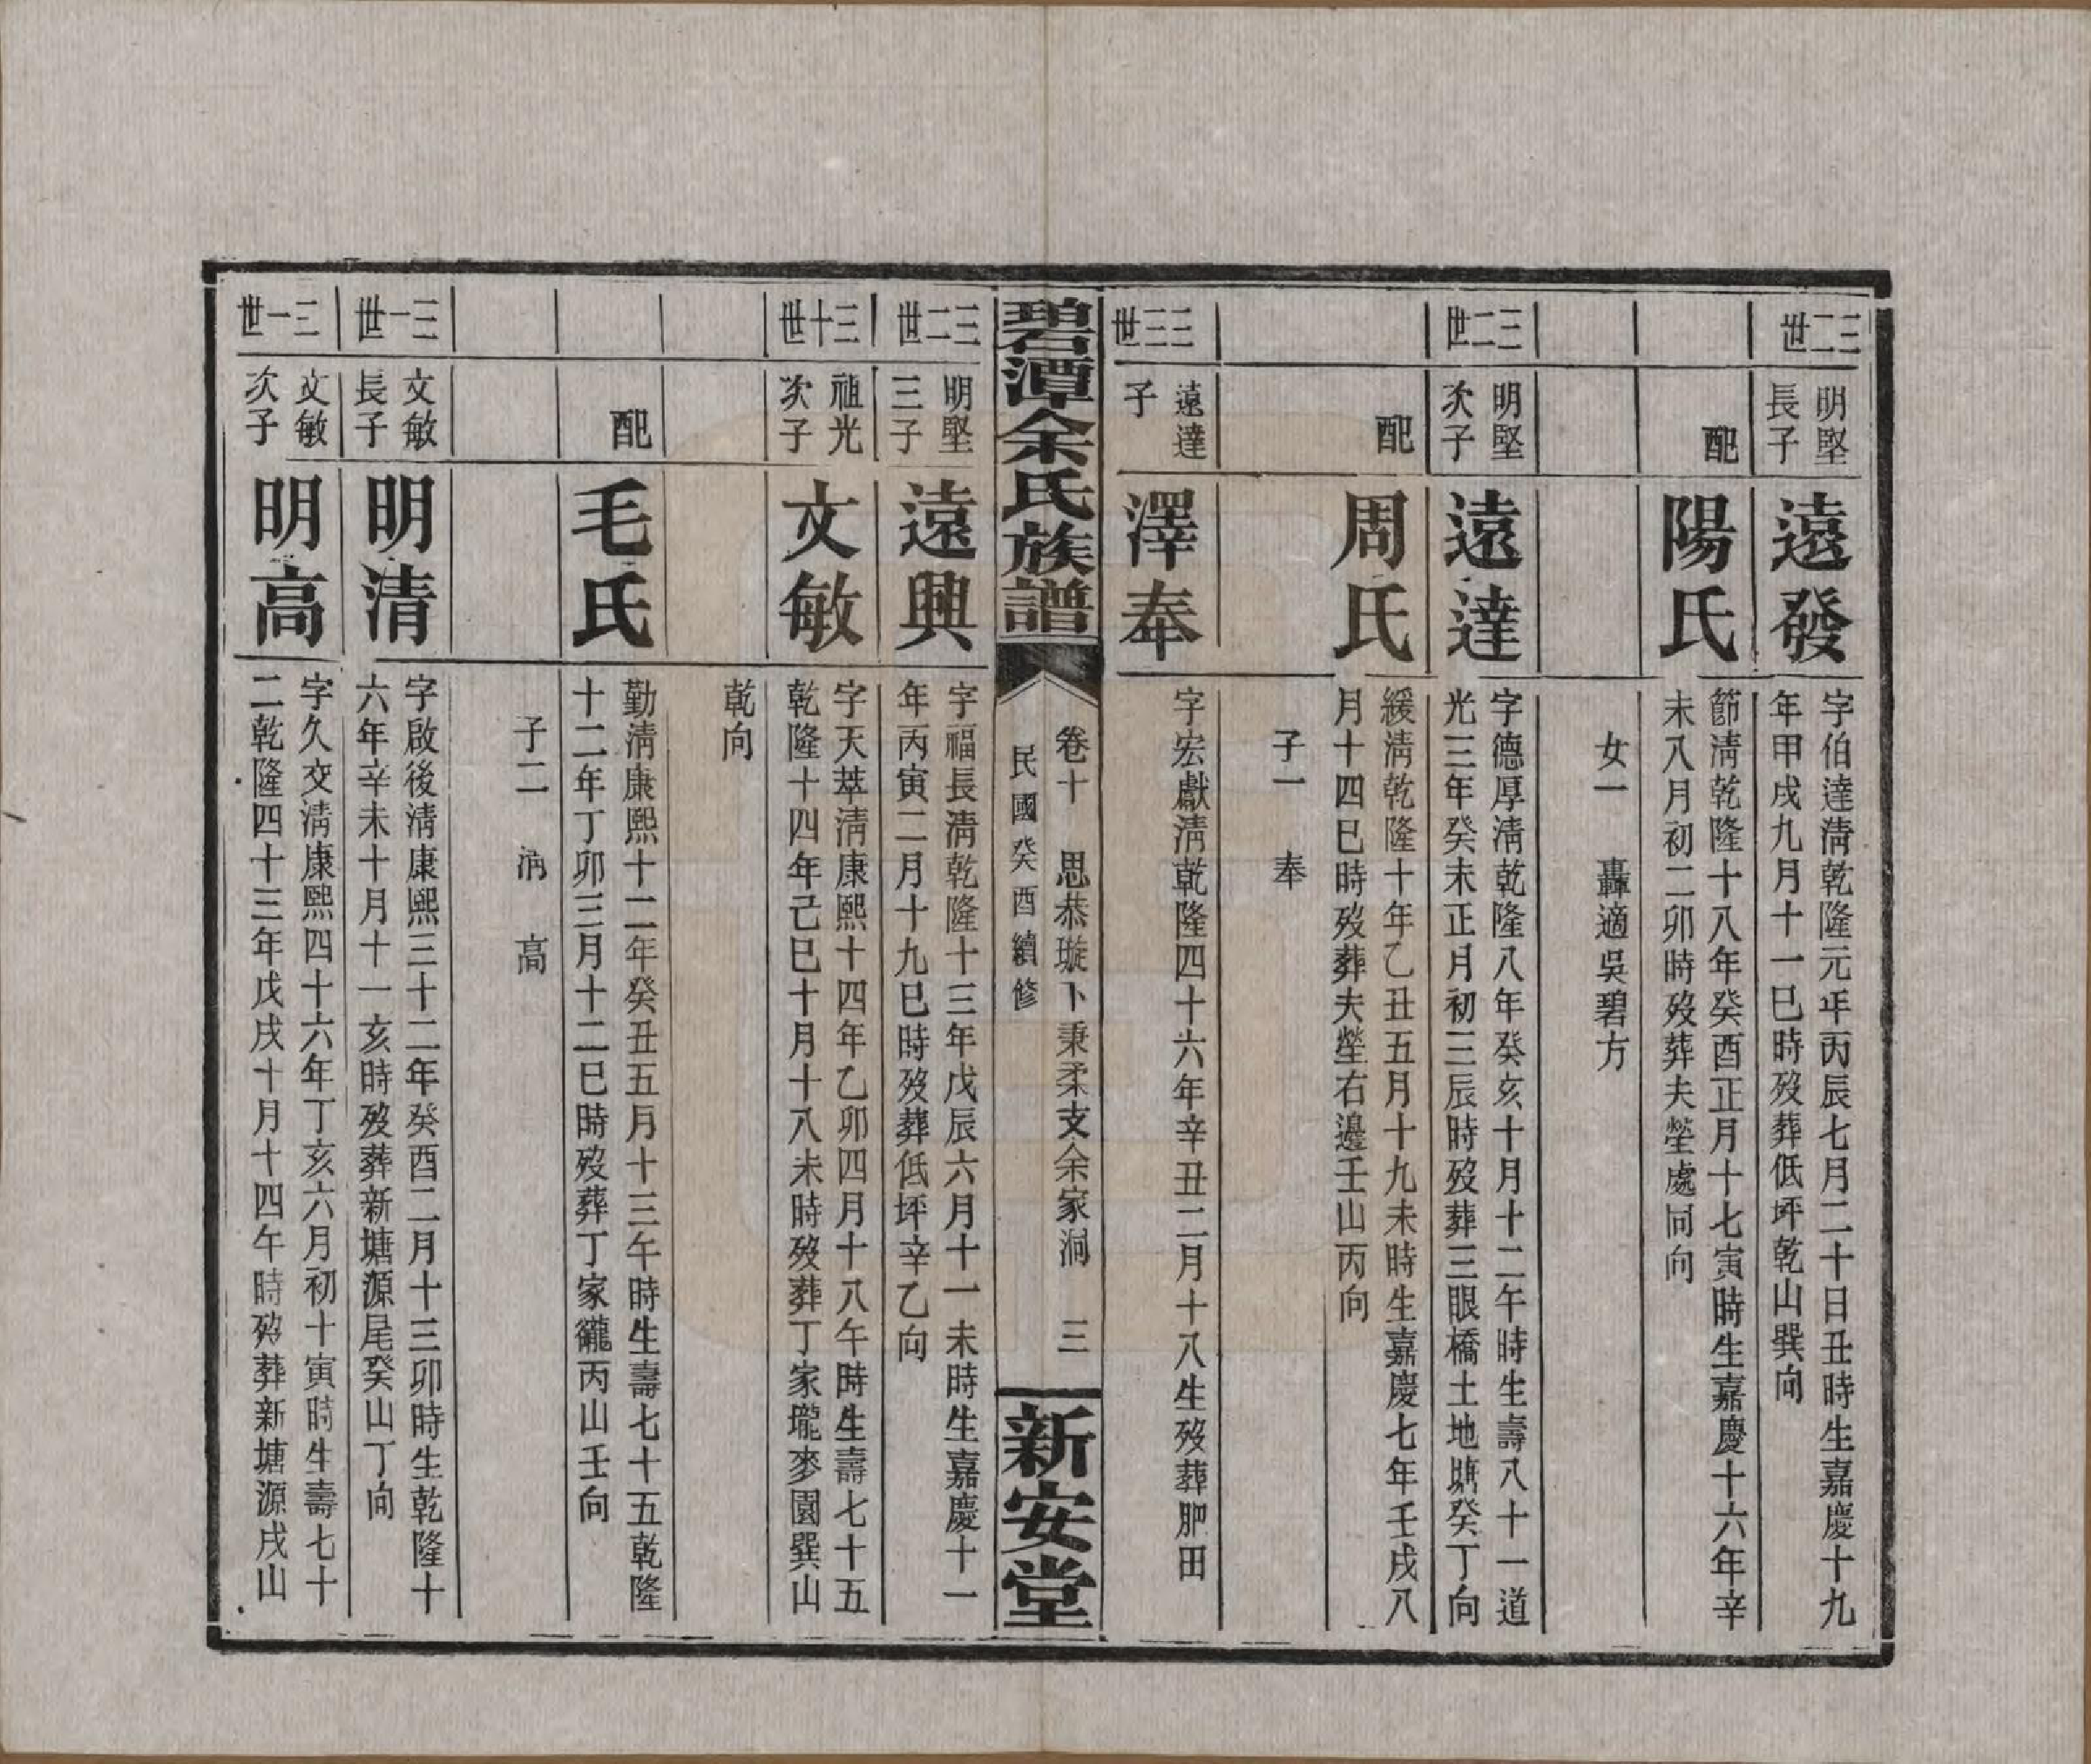 三二世
明堅長子
遠發
字伯達淸乾隆元年丙辰七月二十日丑時生嘉慶十九
年甲戌九月十一巳時歿葬低坪乾山巽向
配
陽氏
節淸乾隆十八年癸酉正月十七寅時生嘉慶十六年辛
未八月初二卯時歿葬夫塋處同向
女一　轟適吳碧方
三二世
明堅次子
遠達
字德厚淸乾隆八年癸亥十月十二午時生壽八十一道
光三年癸未正月初三辰時歿葬三眼橋土地塘癸丁向
配
周氏
緩淸乾隆十年乙丑五月十九未時生嘉慶七年壬戌八
月十四巳時歿葬夫塋右邊壬山丙向
子一　奉
三三世
遠達子
澤奉
字宏獻淸乾隆四十六年辛丑二月十八生歿葬肥田
碧潭余氏族譜
卷十　思恭璇卜秉柔支余家洞　三
民國癸酉續修
新安堂
三二世
明堅三子
遠興
字福長淸乾隆十三年戊辰六月十一未時生嘉慶十一
年丙寅二月十九巳時歿葬低坪辛乙向
三十世
祖光次子
文敏
字天萃淸康熙十四年乙卯四月十八午時生壽七十五
乾隆十四年己巳十月十八未時歿葬丁家壠麥園巽山
乾向
配
毛氏
勤淸康熙十二年癸丑五月十三午時生壽七十五乾隆
十二年丁卯三月十二巳時歿葬丁家巃丙山壬向
子二　淸　高
三一世
文敏長子
明清
字啟後淸康熙三十二年癸酉二月十三卯時生乾隆十
六年辛未十月十一亥時歿葬新塘源尾癸山丁向
三一世
文敏次子
明高
字久交淸康熙四十六年丁亥六月初十寅時生壽七十
二乾隆四十三年戊戌十月十四午時歿葬新塘源戌山